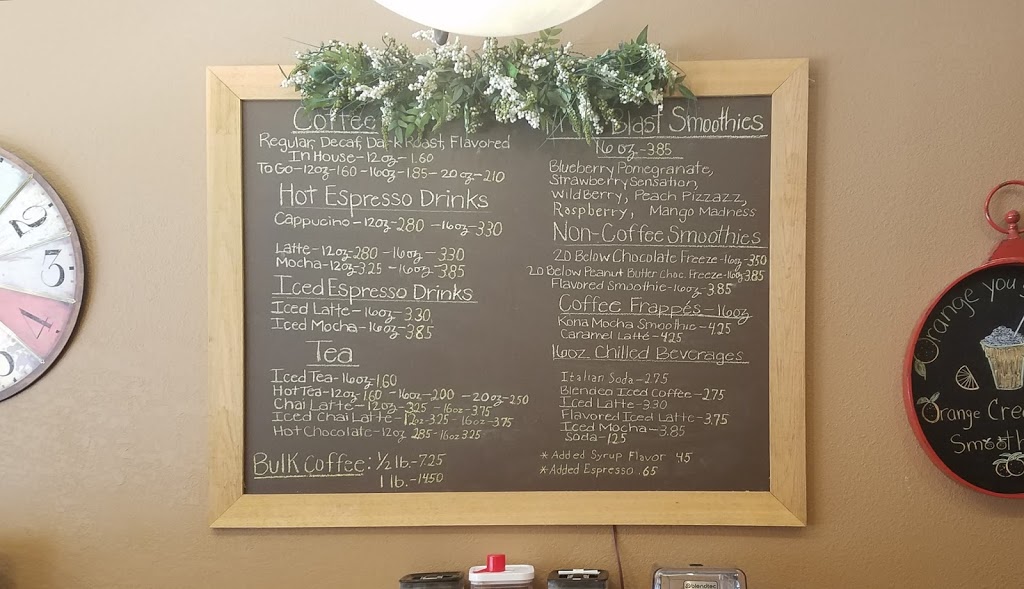 Coffee
Regular, Decaf, Dark Roast, Flavored
In House-12oz-1.60
To Go-12oz-160-16oz-1.85-20oz-210
Hot Espresso Drinks
Cappucino-12oz-280-16oz-330
Latte-12oz-280-16oz-330
Mocha-12oz325-16oz-385
Iced Espresso Drinks
Iced Latte-16oz-330
Iced Mocha-16oz-385
Tea
Iced Tea-16oz-1.60
Hot Tea-12oz-1.60-16oz-2.00-20oz-250
Chai Latte-12oz-325-16oz-375
Iced Chai Latte-12oz 325-16oz-375
Hot Chocolate-12oz 285-16oz 325
Bulk Coffee: 1/2 lb.-7.25
1 lb.-1450
Blast Smoothies
16 oz-385
Blueberry Pomegranate,
Strawberry Sensation,
WildBerry, Peach Pizzazz,
Raspberry, Mango Madness
Non-Coffee Smoothies
20 Below Chocolate Freeze-16oz-350
20 Below Peanut Butter Choc. Freeze-16oz 385
Flavored Smoothie-16oz-385
Coffee Frappés-16oz
Kona Mocha Smoothie-4.25
Caramel Latte-425
16oz. Chilled Beverages
Italian Soda-2.75
Blended Iced Coffee-275
Iced Latte-3.30
Flavored Iced Latte-3.75
Iced Mocha-3.85
Soda-125
*Added Syrup Flavor 45
*Added Espresso .65
2
3
4
Orange you
Orange Cre
Smooth
blendtec